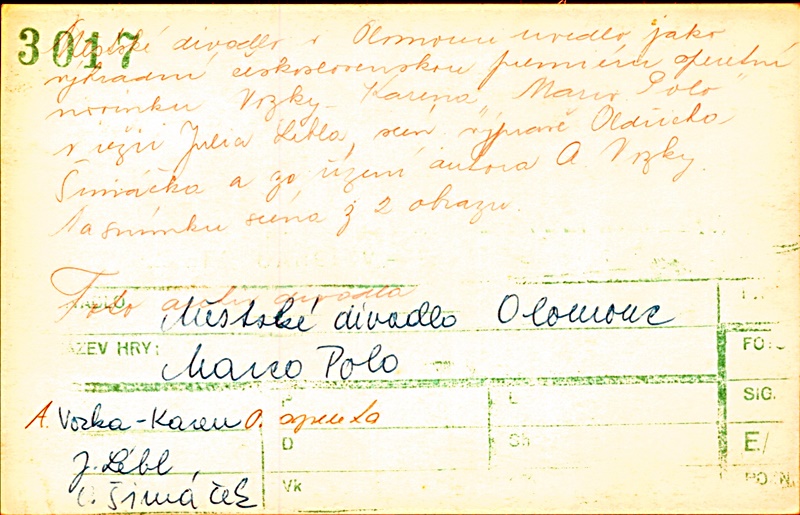 3017
Městské divadlo v Olomouci uvedlo jako
výhradní československou premiéru operetní
novinku Vozky - Karena "Marco Polo"
v režii Julia Lébla, scén. výpravě Oldřicha
Šimáčka a za řízení autora A. Vozky.
Na snímku scéna z 2 obrazu.
Foto archiv divadla
Městské divadlo Olomouc
NÁZEV HRY: Marco Polo
FOTO
A. Vozka-Karen O. opereta
SIG.
J. Lébl,
D
Sh
E/
O. Šimáček
Vk